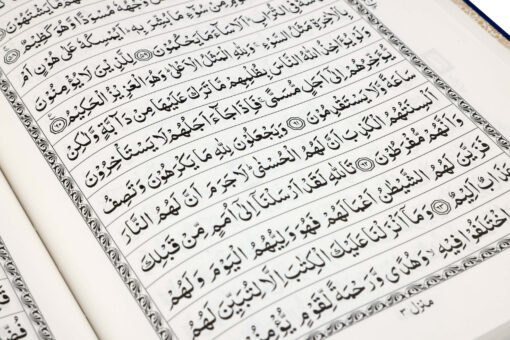 وَجْهُهٗ مُسْوَدًّا وَّهُوَ كَظِيْمٌ ﴿٥٨﴾
مِنْ سُوْٓءِ مَا بُشِّرَ بِهٖ اَيُمْسِكُهٗ عَلٰى هُوْنٍ اَمْ
التُّرَابِ اَلَا سَآءَ مَا يَحْكُمُوْنَ ﴿٥٩﴾ لِلَّذِيْنَ لَا يُؤْمِنُوْنَ
بِالْاٰخِرَةِ مَثَلُ السَّوْءِ وَلِلّٰهِ الْمَثَلُ الْاَعْلٰى وَهُوَ الْعَزِيْزُ الْحَكِيْمُ ﴿٦٠﴾
وَلَوْ يُؤَاخِذُ اللّٰهُ النَّاسَ بِظُلْمِهِمْ مَّا تَرَكَ عَلَيْهَا مِنْ دَآبَّةٍ وَّلٰكِنْ
يُّؤَخِّرُهُمْ اِلٰٓى اَجَلٍ مُّسَمًّى فَاِذَا جَآءَ اَجَلُهُمْ لَا يَسْتَاْخِرُوْنَ
سَاعَةً وَّلَا يَسْتَقْدِمُوْنَ ﴿٦١﴾ وَيَجْعَلُوْنَ لِلّٰهِ مَا يَكْرَهُوْنَ وَتَصِفُ
اَلْسِنَتُهُمُ الْكَذِبَ اَنَّ لَهُمُ الْحُسْنٰى لَا جَرَمَ اَنَّ لَهُمُ النَّارَ
وَاَنَّهُمْ مُّفْرَطُوْنَ ﴿٦٢﴾ تَاللّٰهِ لَقَدْ اَرْسَلْنَآ اِلٰٓى اُمَمٍ مِّنْ قَبْلِكَ
فَزَيَّنَ لَهُمُ الشَّيْطٰنُ اَعْمَالَهُمْ فَهُوَ وَلِيُّهُمُ الْيَوْمَ وَلَهُمْ
عَذَابٌ اَلِيْمٌ ﴿٦٣﴾ وَمَآ اَنْزَلْنَا عَلَيْكَ الْكِتٰبَ اِلَّا لِتُبَيِّنَ لَهُمُ
اخْتَلَفُوْا فِيْهِ وَهُدًى وَّرَحْمَةً لِّقَوْمٍ يُّؤْمِنُوْنَ
منزل ٣